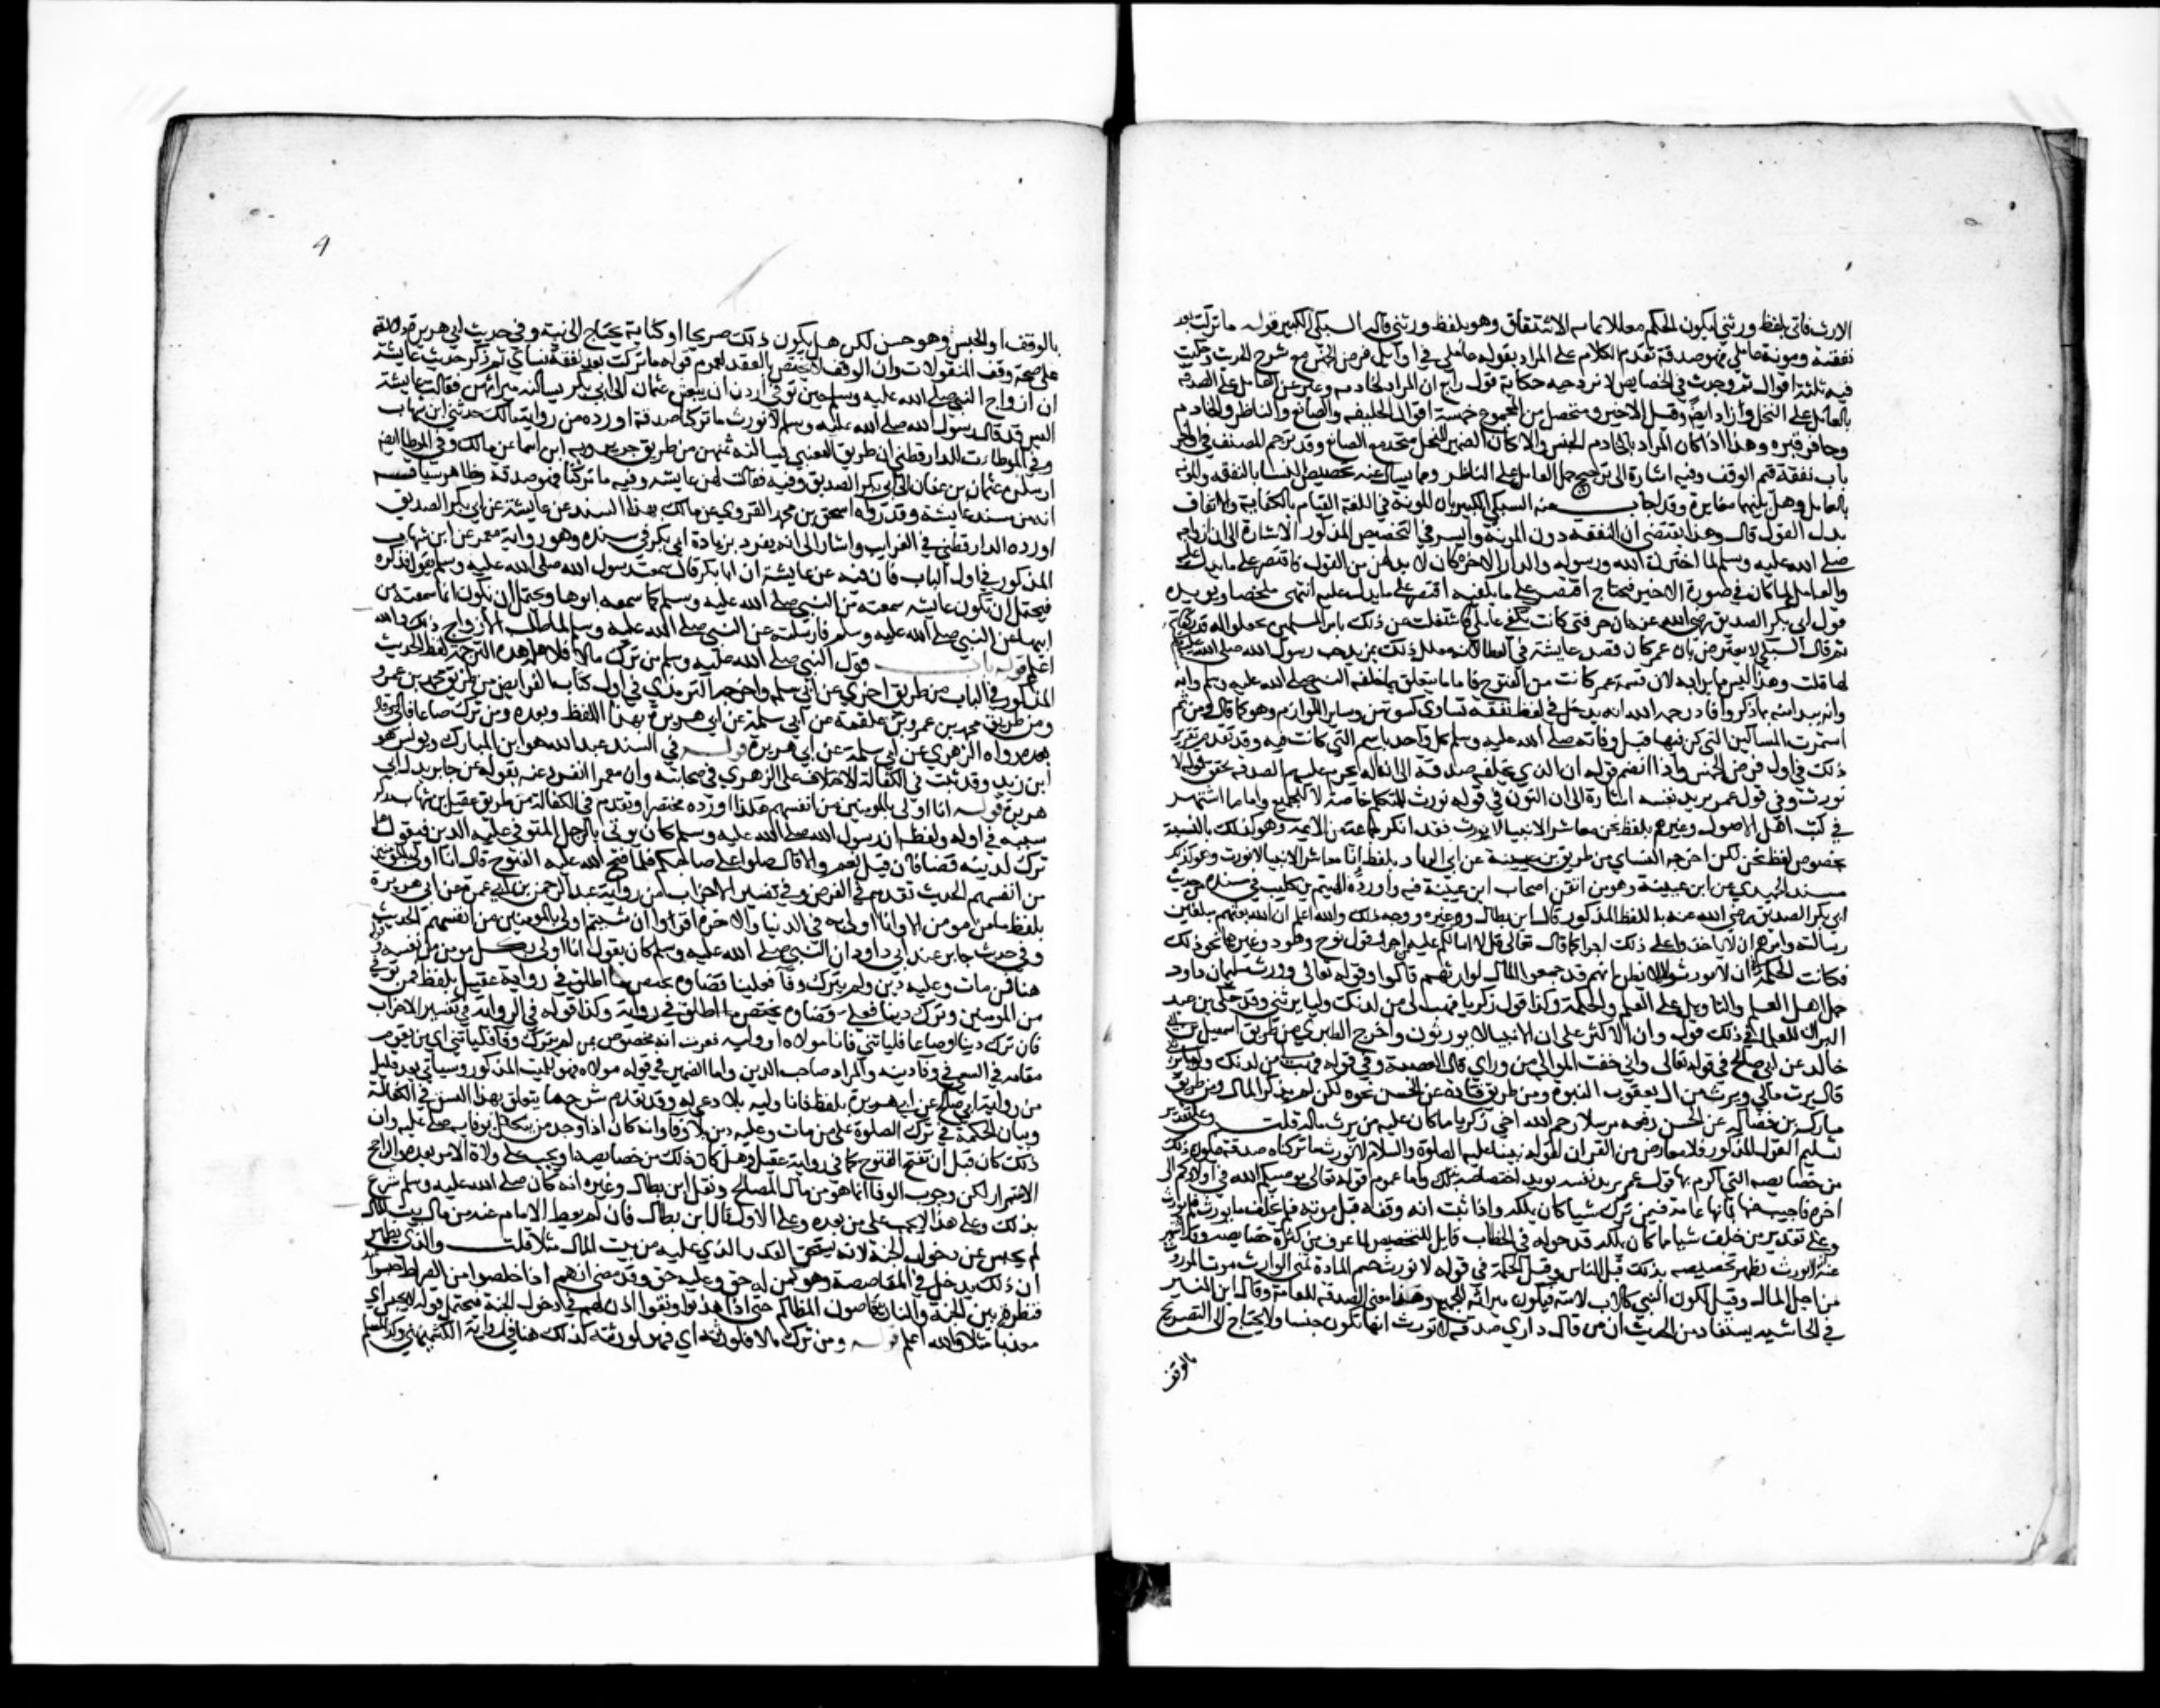 الارث فاتى بلفظ ورثتي ليكون الحكم معللا بما به الاشتقاق وهو بلفظ ورثتي قاله السبكي الكبير قوله ما تركت بعد
نفقة ومونة عاملي فهو صدقة تقدم الكلام على المراد بقوله عاملي في اوايل فرض الخمس مع شرح الحديث وحكيت
فيه ثلثة اقوال ثم وجدت في الخصايص لابن دحيه حكاية قول رابع ان المراد خادمه وعبر عن العامل على الصدقة
بالعامل على النخل وزاد ايضا وقيل الاجير ويتحصل من المجموع خمسة اقوال الخليفه والصانع والناظر والخادم
وحافر قبره وهذا اذا كان المراد بالخادم الجنس والا كان الضمير للنخل فيتحد مع الصانع وقد ترجم المصنف في اواخر
باب نفقة قيم الوقف وفيه اشارة الى ترجيح حمل العامل على الناظر ومما يسال عنه تخصيص النسا بالنفقه والمونه
بالعامل وهل بينهما مغايرة وقد اجاب عنه السبكي الكبير بان المونة في اللغة القيام بالكفاية والانفاق
بذل القوت قال وهذا يقتضي ان النفقه دون المونة والسر في التخصيص المذكور الاشارة الى ان ازواجه
صلى الله عليه وسلم لما اخترن الله ورسوله والدار الاخره كان لا بد لهن من القوت فاقتصر على ما يدل عليه
والعامل لما كان في صورة الاجير فيحتاج الى ما يكفيه اقتصر على ما يدل عليه انتهى ملخصا ويويده
قول ابي بكر الصديق رضي الله عنه ان حرفتي كانت تكفي عايلتي فاشتغلت عن ذلك بامر المسلمين فجعلوا له قدر كفايته
ثم قال السبكي لا يعترض بان عمر كان فضل عايشة في العطا لانه علل ذلك بمزيد حب رسول الله صلى الله عليه وسلم
لها قلت وهذا ليس مما بدا به لان قسمة عمر كانت من الفتوح فاما ما يتعلق بما خلفه النبي صلى الله عليه وسلم وانه
وانه يبدا منه بما ذكر وافاد رحمه الله انه يدخل في لفظ نفقة نساي كسوتهن وساير اللوازم وهو كما قال ومن ثم
استمرت المساكن التي كن فيها قبل وفاته صلى الله عليه وسلم كل واحد باسم التي كانت فيه وقد تقدم تقرير
ذلك في اول فرض الخمس واذا انضم قوله ان الذي نخلفه صدقة الى ان اله يحرم عليهم الصدقه تحقق قوله لا
نورث وفي قول عمر يريد نفسه اشارة الى ان النون في قوله نورث للمتكلم خاصة لا للجميع واما ما اشتهر
في كتب اهل الاصول وغيرهم بلفظ نحن معاشر الانبيا لا نورث فقد انكره جماعة من الايمه وهو كذلك بالنسبة
بخصوص لفظ نحن لكن اخرجه النساي من طريق بن عيينة عن ابي الزناد بلفظ انا معاشر الانبيا لا نورث وهو كذلك
مسند الحميدي عن ابن عيينة وهو من اتقن اصحاب ابن عيينة فيه واورده الهيثم بن كليب في مسنده من حديث
ابي بكر الصديق رضي الله عنه باللفظ المذكور قال ابن بطال وغيره ووجه ذلك والله اعلم ان الله بعثهم مبلغين
رسالته وامرهم ان لا ياخذوا على ذلك اجرا كما قال تعالى قل لا اسالكم عليه اجرا وقال نوح وهود وغيرهما نحو ذلك
فكانت الحكمة في ان لا يورثوا ليلا يظن انهم قد جمعوا المال لوارثهم قالوا وقوله تعالى وورث سليمان داود
حمل اهل العلم والتاويل على العلم والحكمة وكذا قول زكريا فهب لي من لدنك وليا يرثني وقد حكى بن عبد
البر ان للعلما في ذلك قولين وان الاكثر على ان الانبيا لا يورثون واخرج الطبري من طريق اسمعيل بن
خالد عن ابي صالح في قوله تعالى واني خفت الموالي من وراي قال العصبة وفي قوله فهب لي من لدنك وليا يرثني
قال يرث مالي ويرث من ال يعقوب النبوة ومن طريق قتادة عن الحسن نحوه لكن لم يذكر المال ومن طريق
مبارك بن فضاله عن الحسن رفعه مرسلا رحم الله اخي زكريا ما كان عليه من يرث ماله قلت وعلى تقدير
تسليم القول المذكور فلا معارض من القران لقول نبينا عليه الصلوة والسلام لا نورث ما تركناه صدقة فيكون ذلك
من خصايصه التي اكرم بها وقول عمر يريد نفسه يويد اختصاصه بذلك واما عموم قوله تعالى يوصيكم الله في اولادكم الى
اخره فاجيب عنها بانها عامة فيمن ترك شيا كان يملكه واذا ثبت انه وقفه قبل موته فلم يخلف ما يورث فلم يورث
وعلى تقدير من خلف شيا مما كان يملكه فدخوله في الخطاب قابل للتخصيص لما عرف من كثرة خصايصه وقد اشتهر
عنه لا نورث فظهر تخصيصه بذلك دون الناس وقيل الحكمة في قوله لا نورث حسم المادة في تمني الوارث موت المورث
من اجل المال وقيل لكون النبي كالاب لامته فيكون ميراثه للجميع وهذا معنى الصدقه العامة وقال ابن المنير
في الحاشيه يستفاد من الحديث ان من قال داري صدقة لا تورث انها تكون حبسا ولا يحتاج الى التصريح
بالوقف
4
بالوقف او الحبس وهو حسن لكن هل يكون ذلك صريحا او كناية يحتاج الى نية وفي حديث ابي هريرة دلالة
على صحة وقف المنقولات وان الوقف لا يختص بالعقار لعموم قوله ما تركت بعد نفقة نساي ثم ذكر حديث عايشة
ان ازواج النبي صلى الله عليه وسلم حين توفي اردن ان يبعثن عثمان الى ابي بكر يسالنه ميراثهن فقالت عايشة
اليس قد قال رسول الله صلى الله عليه وسلم لا نورث ما تركنا صدقة اورده من رواية مالك حدثني ابن شهاب
وفي الموطا للدارقطني من طريق القعنبي يسالنه ثمنهن من طريق جويرية ابن اسما عن مالك وفي الموطا ايضا
ارسلن عثمان بن عفان الى ابي بكر الصديق وفيه فقالت لهن عايشه وفيه ما تركنا فهو صدقة وظاهر سياقه
انه من مسند عايشة وقد رواه اسحق بن محمد الفروي عن مالك بهذا السند عن عايشة عن ابي بكر الصديق
اورده الدارقطني في الغرايب واشار الى انه تفرد بزيادة ابي بكر في سنده وهو رواية معمر عن ابن شهاب
المذكور في اول الباب فان فيه عن عايشة ان ابا بكر قال سمعت رسول الله صلى الله عليه وسلم يقول فذكره
فيحتمل ان تكون عايشه سمعته من النبي صلى الله عليه وسلم كما سمعه ابوها ويحتمل ان تكون انما سمعته من
ابيها عن النبي صلى الله عليه وسلم فارسلته عن النبي صلى الله عليه وسلم لما طلب الازواج ذلك والله
اعلم قوله باب قول النبي صلى الله عليه وسلم من ترك مالا فلاهله هذه الترجمة لفظ الحديث
المذكور في الباب من طريق اخرى عن ابي سلمه واخرجه الترمذي في اول كتاب الفرايض من طريق محمد بن عمرو
ومن طريق محمد بن عمرو بن علقمة عن ابي سلمة عن ابي هريرة بهذا اللفظ وبعده ومن ترك ضياعا فالي وقال
بعده رواه الزهري عن ابي سلمة عن ابي هريرة قوله في السند عبد الله هو ابن المبارك ويونس هو
ابن زيد وقد ثبت في الكفالة الاختلاف على الزهري في صحابيه وان معمرا انفرد عنه بقوله عن جابر بدل ابي
هريرة قوله انا اولى بالمومنين من انفسهم هكذا اورده مختصرا وتقدم في الكفالة من طريق عقيل بن شهاب بذكر
سببه في اوله ولفظه ان رسول الله صلى الله عليه وسلم كان يوتى بالرجل المتوفى عليه الدين فيقول هل
ترك لدينه قضا فان قيل نعم والا قال صلوا على صاحبكم فلما فتح الله عليه الفتوح قال انا اولى بالمومنين
من انفسهم الحديث تقدم في القرض وفي تفسير الاحزاب من رواية عبد الرحمن بن ابي عمرة عن ابي هريرة
بلفظ ما من مومن الا وانا اولى به في الدنيا والاخرة اقراوا ان شيتم النبي اولى بالمومنين من انفسهم الحديث
وفي حديث جابر عند ابي داود ان النبي صلى الله عليه وسلم كان يقول انا اولى بكل مومن من نفسه قوله
هنا فمن مات وعليه دين ولم يترك وفا فعلينا قضاوه يخص ما اطلق في رواية عقيل بلفظ فمن توفي
من المومنين وترك دينا فعلي قضاوه يختص ما اطلق في رواية وكذا قوله في الرواية في تفسير الاحزاب
فان ترك دينا او ضياعا فلياتني فانا مولاه او وليه فعرف انه مخصوص بمن لم يترك وفا فلياتني اي من يقوم
مقامه في السعي في وفا دينه والمراد صاحب الدين واما الضمير في قوله مولاه فهو للميت المذكور وسياتي بعد قليل
من رواية ابي صالح عن ابي هريرة بلفظ فانا وليه فلادعى له وقد تقدم شرح ما يتعلق بهذا السند في الكفالة
وبيان الحكمة في ترك الصلوة على من مات وعليه دين بلا وفا وانه كان اذا وجد من يتكفل بوفايه صلى عليه وان
ذلك كان قبل ان تفتح الفتوح كما في رواية عقيل وهل كان ذلك من خصايصه او يجب على ولاة الامر بعده والراجح
الاستمرار لكن وجوب الوفا انما هو من مال المصالح ونقل ابن بطال وغيره انه كان صلى الله عليه وسلم تبرع
بذلك وعلى هذا لا يجب على من بعده وعلى الاول قال ابن بطال فان لم يعط الامام عنه من مال بيت المال
لم يحبس عن دخول الجنة لانه يستحق القدر الذي عليه من بيت المال مثلا قلت والذي يظهر
ان ذلك يدخل في المقاصصة وهو كمن له حق وعليه حق وقد مضى انهم اذا خلصوا من الصراط حبسوا
قنطرة بين الجنة والنار يتقاصون المظالم حتى اذا هذبوا ونقوا اذن لهم في دخول الجنة فيحتمل قوله لا يحبس اي
معذبا مثلا والله اعلم قوله ومن ترك مالا فلورثته اي فهو لورثته كذلك هنا في رواية الكشميهني وكذا لمسلم